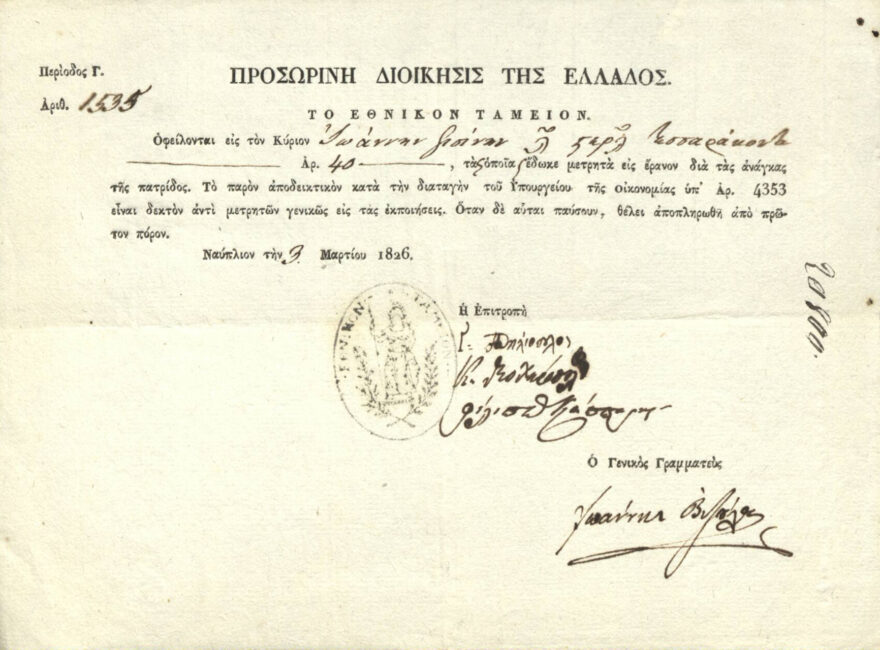 Περίοδος Γ.
ΠΡΟΣΩΡΙΝΗ ΔΙΟΙΚΗΣΙΣ ΤΗΣ ΕΛΛΑΔΟΣ.
Ἀριθ. 1535
ΤΟ ΕΘΝΙΚΟΝ ΤΑΜΕΙΟΝ.
Ὀφείλονται εἰς τὸν Κύριον Ἰωάννην
Ἀρ. 40 , τὰ ὁποῖα ἔδωκε μετρητὰ εἰς ἔρανον διὰ τὰς ἀνάγκας
τῆς πατρίδος. Τὸ παρὸν ἀποδεικτικὸν κατὰ τὴν διαταγὴν τοῦ Ὑπουργείου τῆς οἰκονομίας ὑπ' Ἀρ. 4353
εἶναι δεκτὸν ἀντὶ μετρητῶν γενικῶς εἰς τὰς ἐκποιήσεις. Ὅταν δὲ αὗται παύσουν, θέλει ἀποπληρωθῆ ἀπὸ πρῶ-
τον πόρον.
Ναύπλιον τὴν 3 Μαρτίου 1826.
Ἡ Ἐπιτροπὴ
Ὁ Γενικὸς Γραμματεὺς
Ἰωάννης